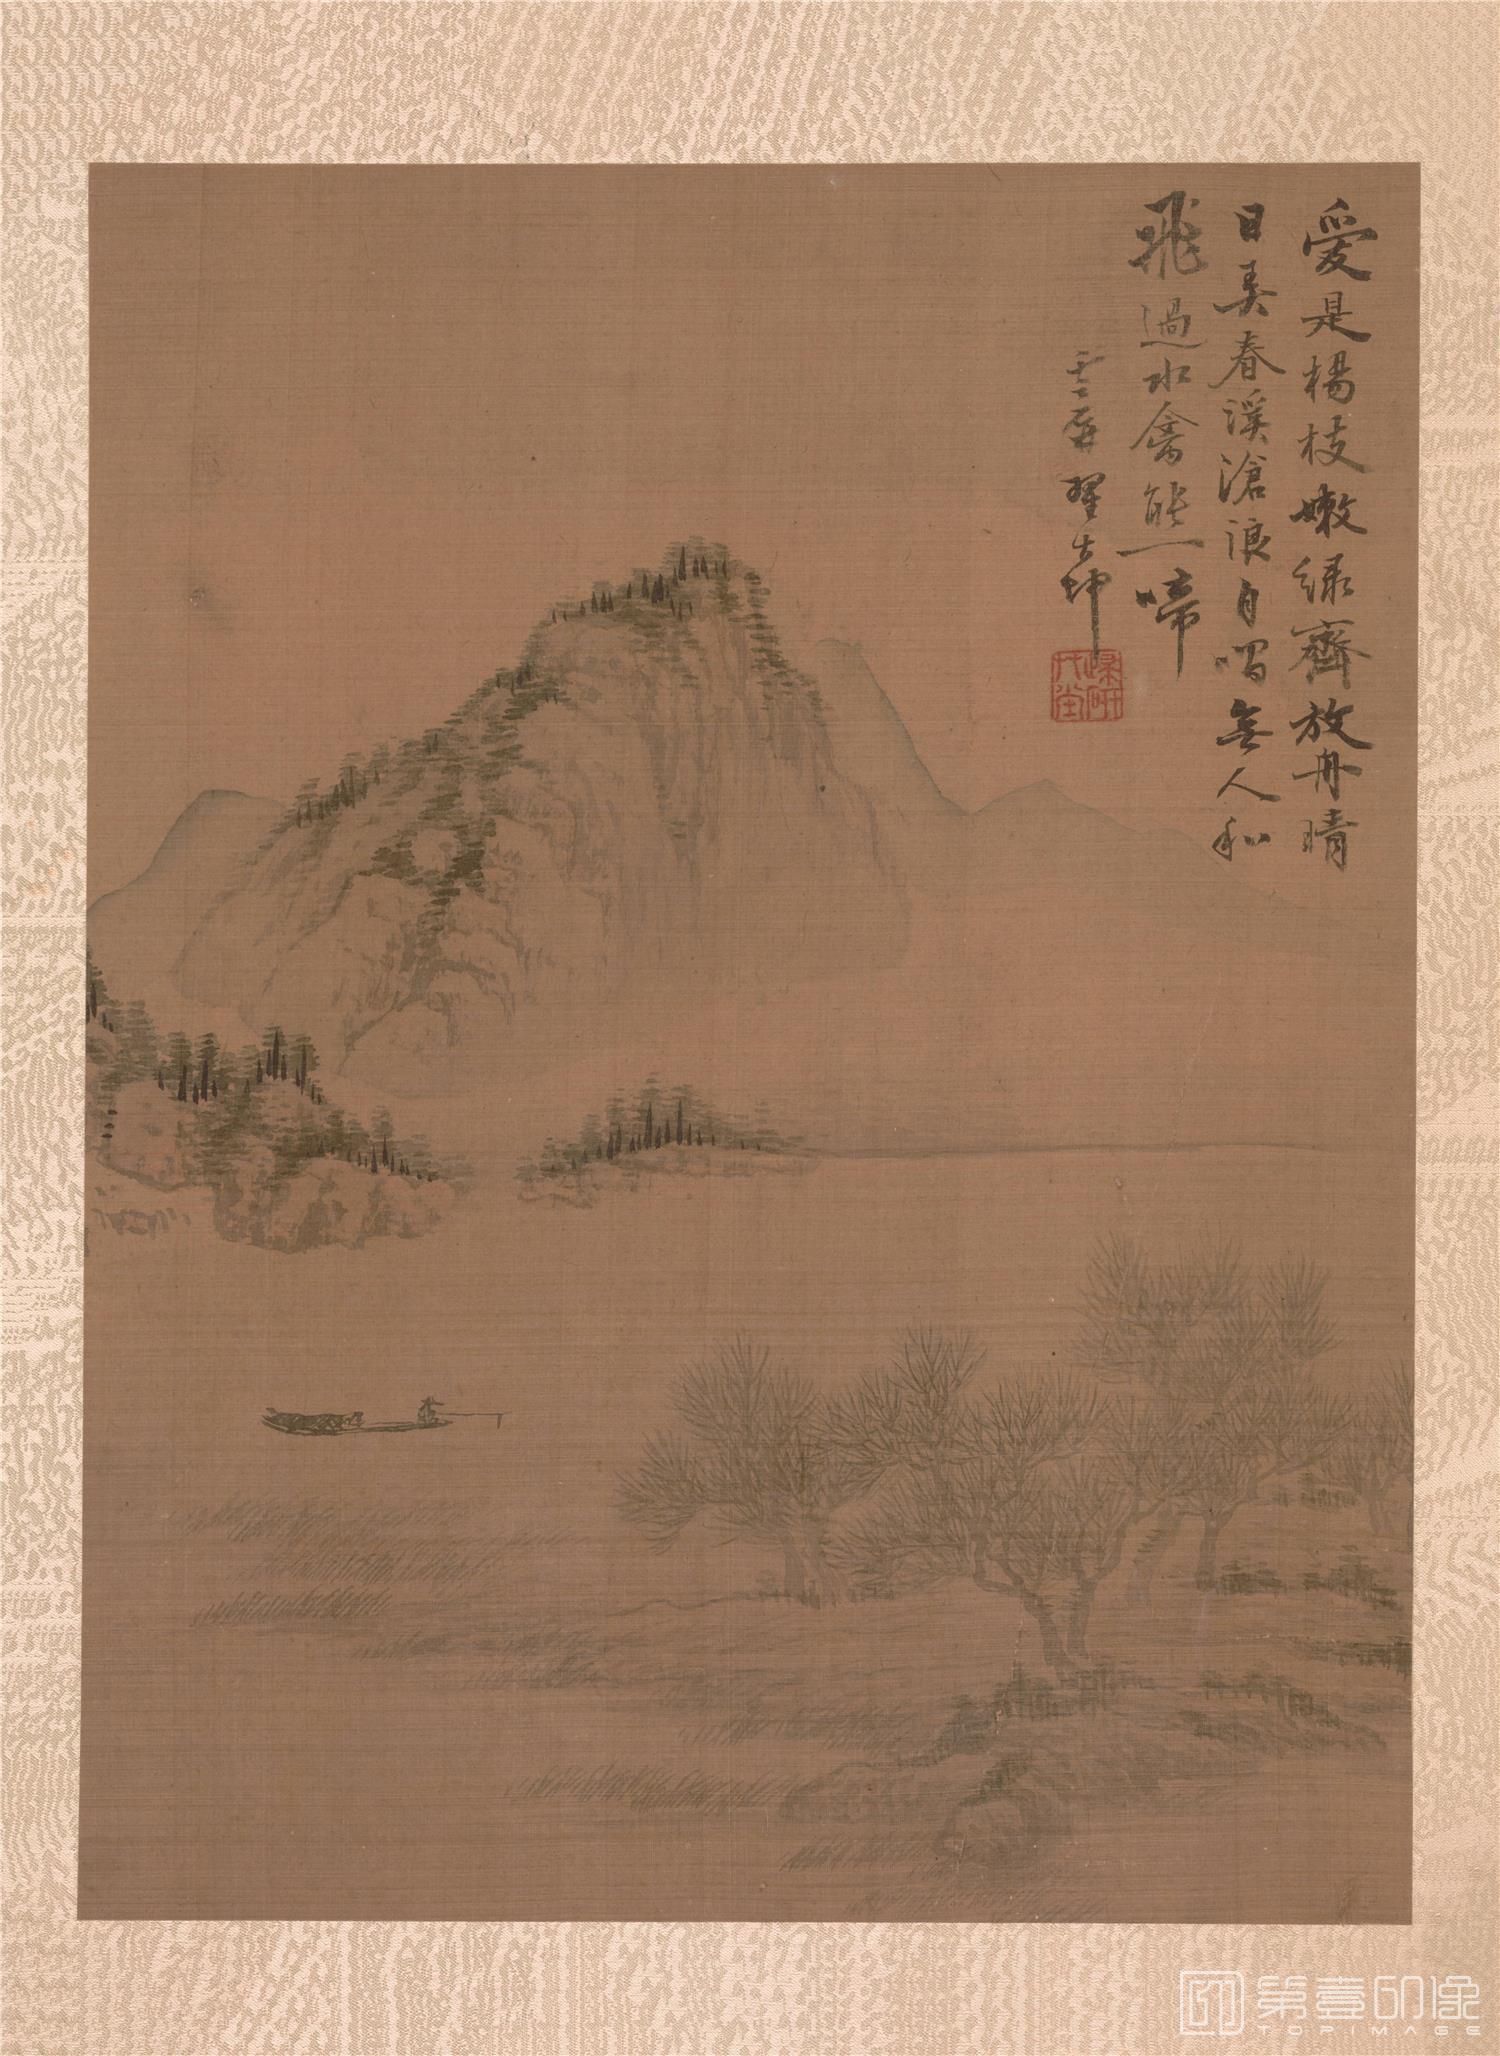 愛是楊枝嫩綠齊放舟晴
日美春溪滄浪自唱無人和
飛過水禽能一啼
雲屏翟大坤
第壹印像
TOPIMAGE